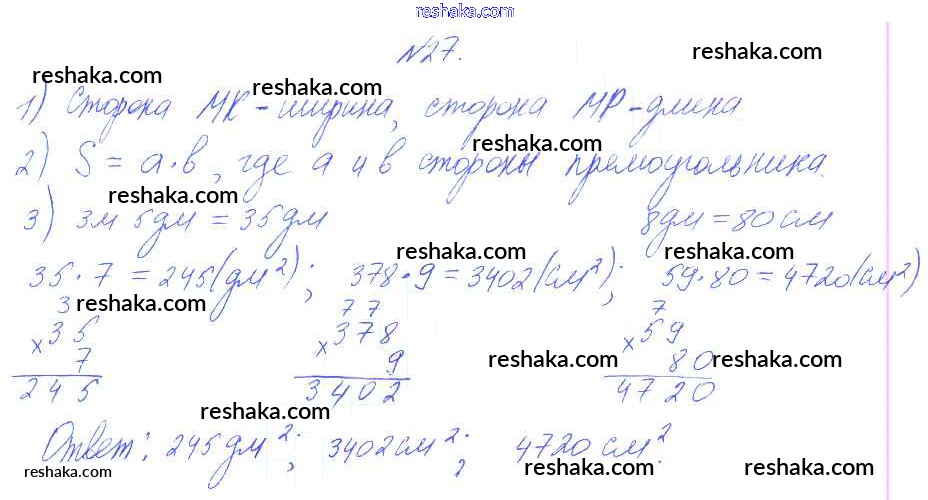 reshaka.com
№27. reshaka.com
reshaka.com reshaka.com
1) Сторона МК - ширина, сторона МР - длина
reshaka.com
2) S = a·в, где а и в стороны прямоугольника.
reshaka.com reshaka.com
3) 3м 5дм = 35дм 8дм = 80 см
reshaka.com reshaka.com
35·7 = 245(дм²); 378·9 = 3402(см²); 59·80 = 4720(см²)
reshaka.com
3 77 7
×35 ×378 ×59
7 9 80
reshaka.com reshaka.com
245 3402 4720
reshaka.com
Ответ: 245 дм²; 3402 см²; 4720 см².
reshaka.com reshaka.com reshaka.com